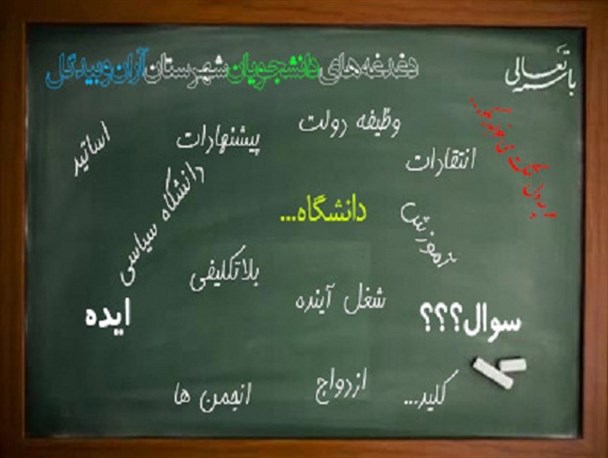 باسمه تعالی
دغدغه‌های دانشجویان شهرستان آران و بیدگل
وظیفه دولت
پیشنهادات
اساتید
انتقادات
دانشگاه سیاسی
دانشگاه...
آموزش
بلاتکلیفی
شغل آینده
سوال؟؟؟
ایده
کلید...
ازدواج
انجمن ها